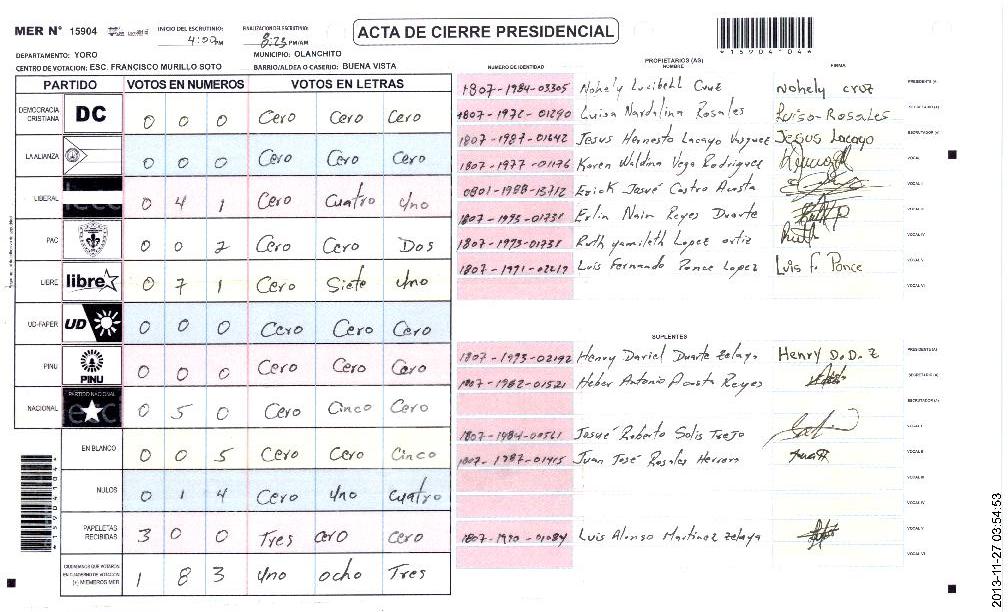 MER N° 15904
INICIO DEL ESCRUTINIO: 4:00 PM
FINALIZACION DEL ESCRUTINIO: 8:23 PM/AM
ACTA DE CIERRE PRESIDENCIAL
*159041046*
DEPARTAMENTO: YORO
MUNICIPIO: OLANCHITO
CENTRO DE VOTACION: ESC. FRANCISCO MURILLO SOTO
BARRIO/ALDEA O CASERIO: BUENA VISTA
PARTIDO VOTOS EN NUMEROS VOTOS EN LETRAS
DEMOCRACIA CRISTIANA DC 0 0 0 Cero Cero Cero
LA ALIANZA 0 0 0 Cero Cero Cero
LIBERAL 0 4 1 Cero Cuatro Uno
PAC 0 0 2 Cero Cero Dos
LIBRE libre 0 7 1 Cero Siete Uno
UD-FAPER UD 0 0 0 Cero Cero Cero
PINU PINU 0 0 0 Cero Cero Cero
NACIONAL PARTIDO NACIONAL 0 5 0 Cero Cinco Cero
EN BLANCO 0 0 5 Cero Cero Cinco
NULOS 0 1 4 Cero Uno Cuatro
PAPELETAS RECIBIDAS 3 0 0 Tres cero Cero
CIUDADANOS QUE VOTARON EN CUADERNO DE VOTACION (+) MIEMBROS MER 1 8 3 Uno ocho Tres
NUMERO DE IDENTIDAD PROPIETARIOS (AS) NOMBRE FIRMA
1807-1984-03305 Nohely Lucibell Cruz Nohely cruz PRESIDENTE (A)
1807-1972-01290 Luisa Nardalina Rosales Luisa Rosales SECRETARIO (A)
1807-1987-01642 Jesus Hernesto Lacayo Vasquez Jesus Lacayo ESCRUTADOR (A)
1807-1977-01176 Karen Waldina Vega Rodriguez VOCAL
0801-1988-13712 Erick Josué Castro Acosta VOCAL I
1807-1995-01731 Erlin Nain Reyes Duarte VOCAL II
1807-1973-01738 Ruth yamileth Lopez ortiz Ruth VOCAL IV
1807-1991-02219 Luis Fernando Ponce Lopez Luis F. Ponce VOCAL V
VOCAL VI
SUPLENTES
1807-1993-02192 Henry Daniel Duarte Zelaya Henry D.D.Z PRESIDENTE (A)
1807-1982-01521 Heber Antonio Acosta Reyes SECRETARIO (A)
ESCRUTADOR (A)
1807-1984-00561 Josué Roberto Solis Trejo VOCAL I
1807-1987-01415 Juan José Rosales Herrera VOCAL II
VOCAL III
VOCAL IV
1807-1990-01084 Luis Alonso Martinez Zelaya VOCAL V
VOCAL VI
2013-11-27 03:54:53